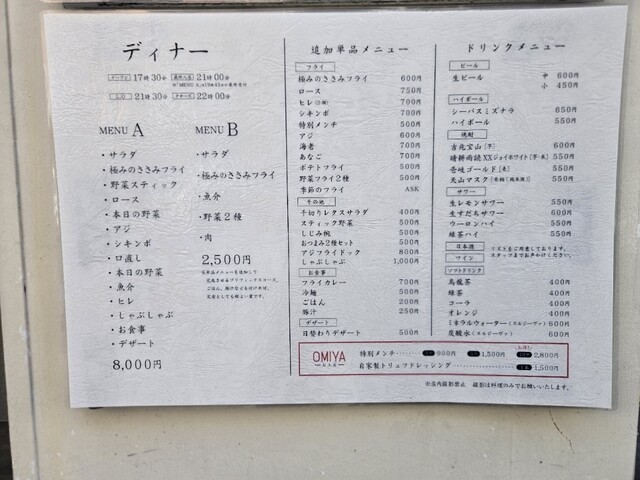 ディナー
オープン 17時30分 最終入店 21時00分
L.O 21時30分 クローズ 22時00分
MENU A
・サラダ
・極みのささみフライ
・野菜スティック
・ロース
・本日の野菜
・アジ
・シキンボ
・口直し
・本日の野菜
・魚介
・ヒレ
・しゃぶしゃぶ
・お食事
・デザート
8,000円
MENU B
・サラダ
・極みのささみフライ
・魚介
・野菜2種
・肉
2,500円
追加単品メニュー
フライ
極みのささみフライ 600円
ロース 750円
ヒレ 700円
シキンボ 700円
特別メンチ 500円
アジ 600円
海老 700円
あなご 700円
ポテトフライ 500円
野菜フライ2種 500円
季節のフライ ASK
その他
千切りレタスサラダ 400円
スティック野菜 500円
しじみ椀 300円
おつまみ2種セット 500円
アジフライドック 800円
しゃぶしゃぶ 1,000円
お食事
フライカレー 700円
冷麺 500円
ごはん 200円
豚汁 250円
デザート
日替わりデザート 500円
ドリンクメニュー
ビール
生ビール 中 600円
小 450円
ハイボール
シーバスミズナラ 650円
ハイボール 550円
焼酎
吉兆宝山[芋] 600円
晴耕雨読XXジョイホワイト[芋・米] 550円
壱岐ゴールド[麦] 550円
天山マスク 550円
サワー
生レモンサワー 550円
生すだちサワー 600円
ウーロンハイ 550円
緑茶ハイ 550円
日本酒
ワイン
リストをご用意しております。
スタッフまでお声かけください。
ソフトドリンク
烏龍茶 400円
緑茶 400円
コーラ 400円
オレンジ 400円
ミネラルウォーター(ヌルジーヴァ) 600円
炭酸水(ヌルジーヴァ) 600円
OMIYA
特別メンチ 900円 1,500円 2,800円
自家製トリュフドレッシング 1,500円
※店内撮影禁止 撮影は料理のみでお願いいたします。